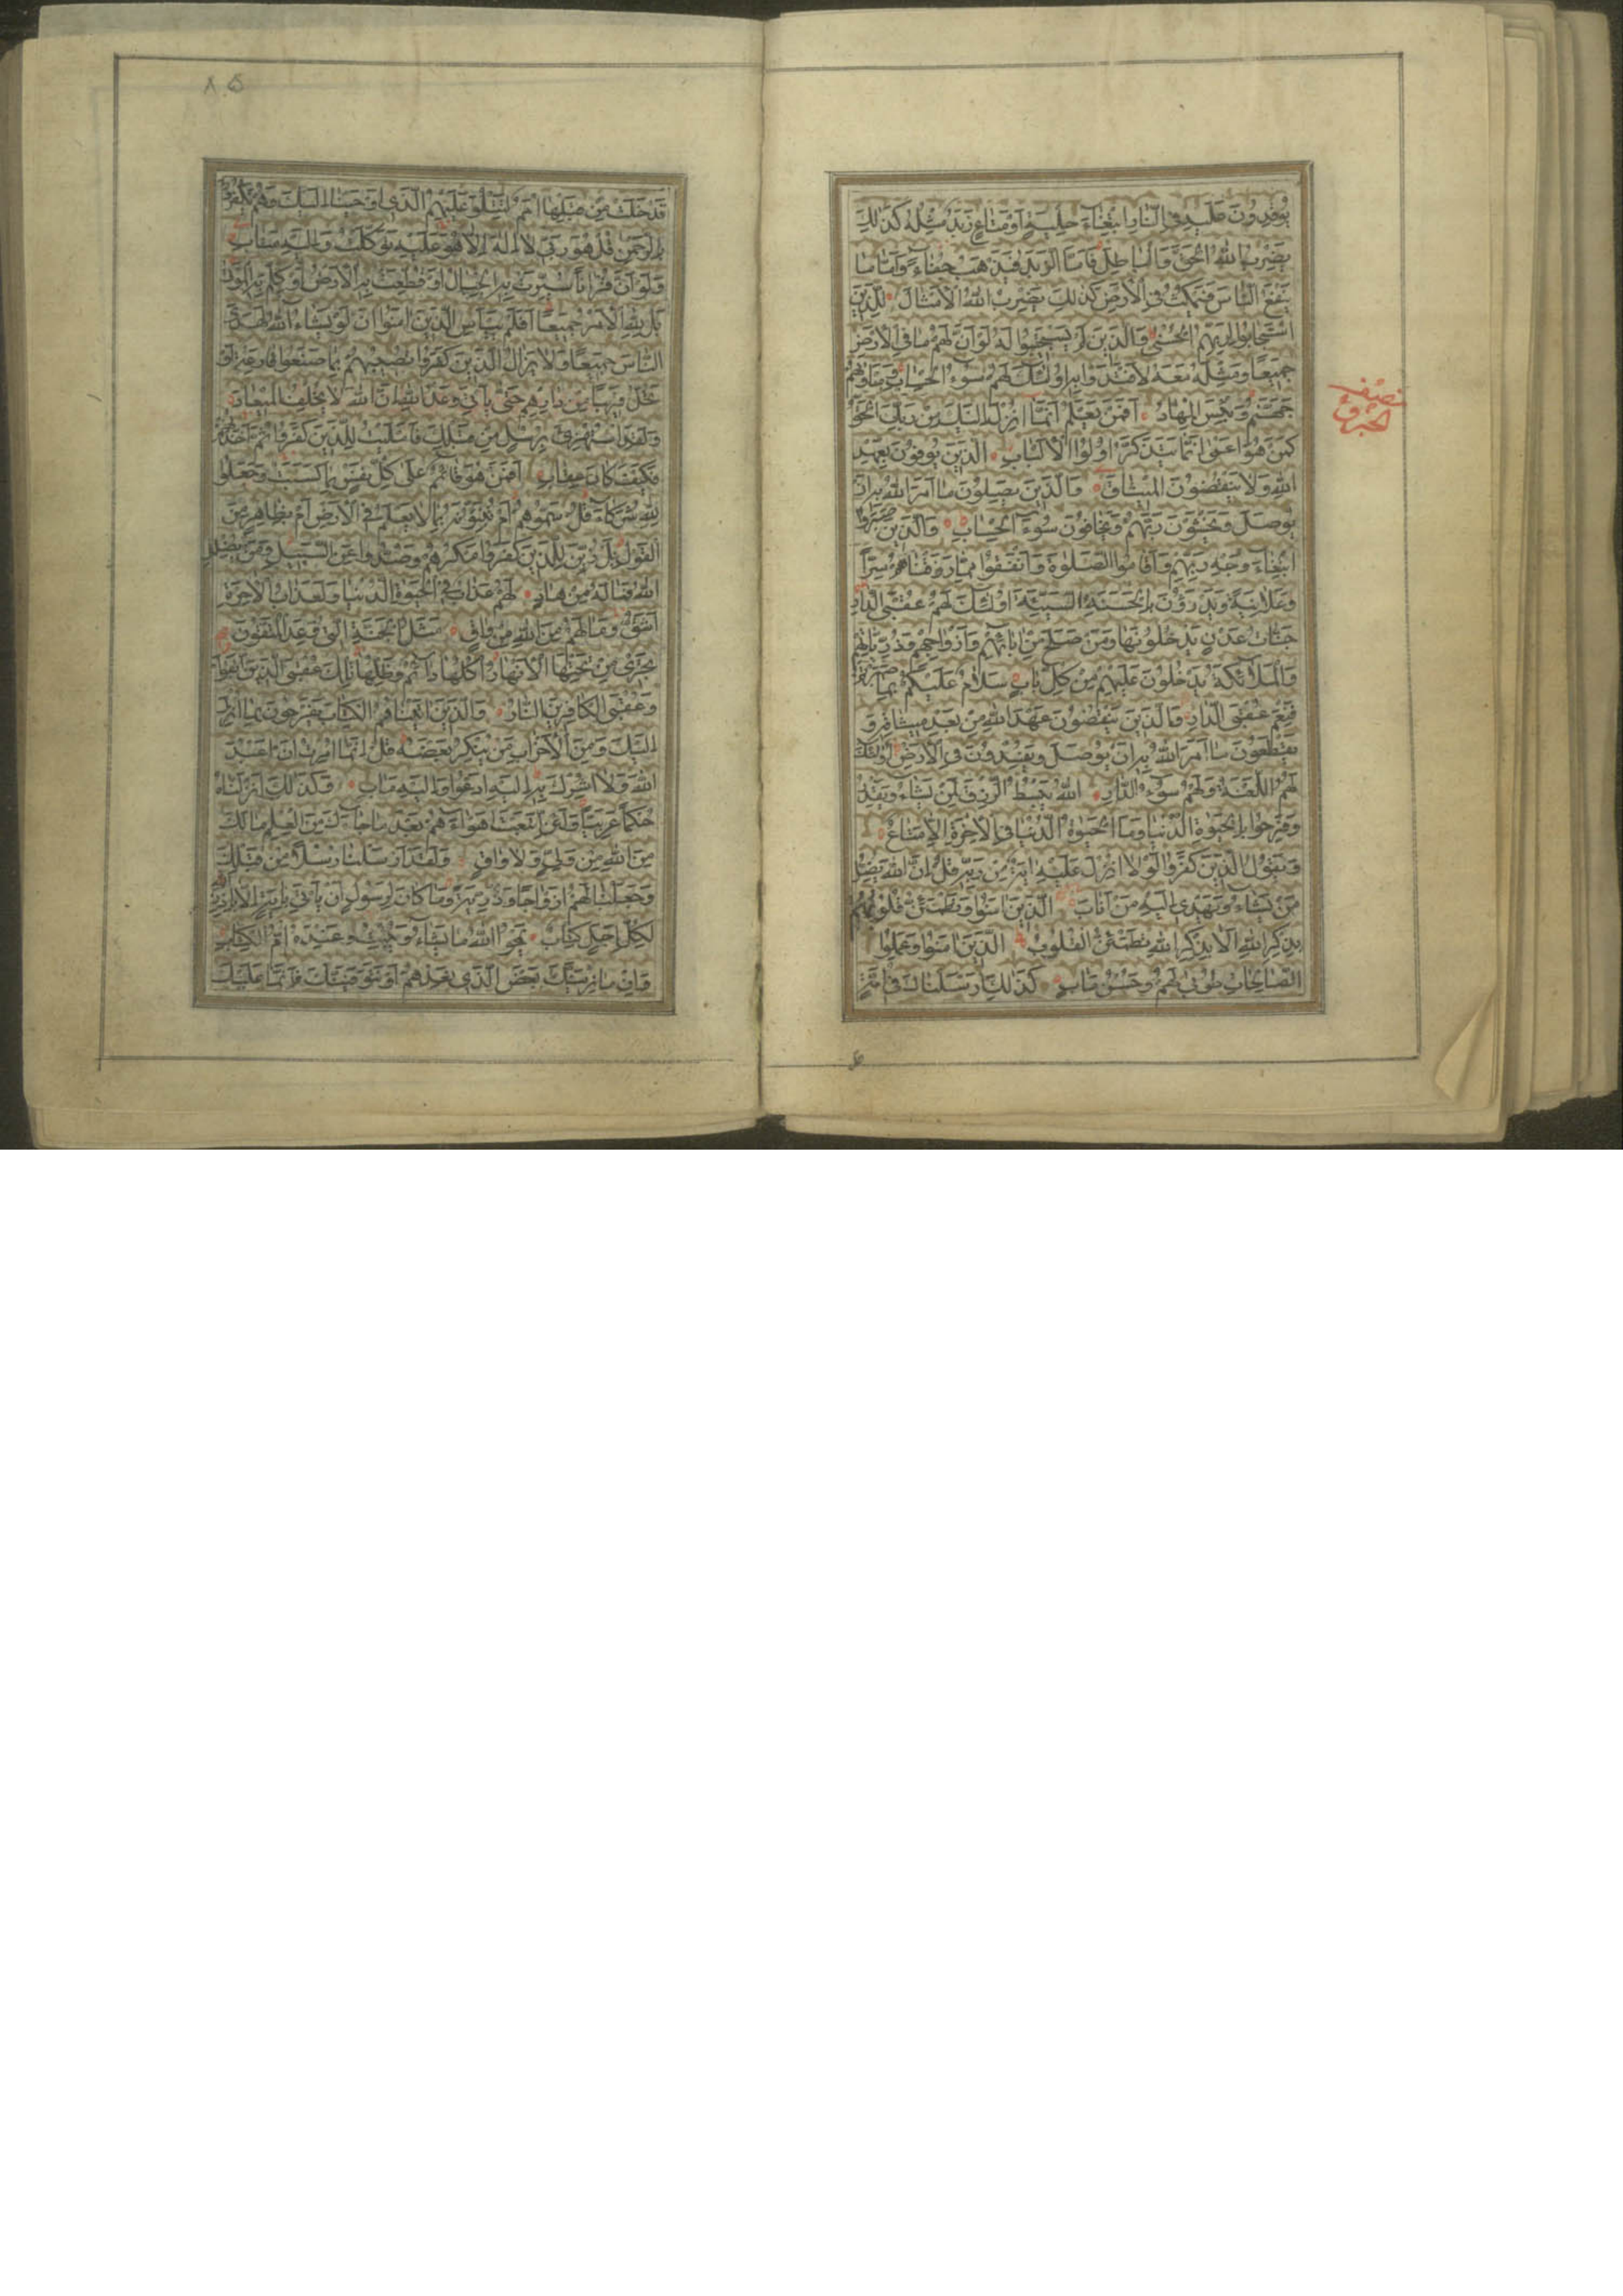 يُوقِدُونَ عَلَيْهِ فِي النَّارِ ابْتِغَاءَ حِلْيَةٍ أَوْ مَتَاعٍ زَبَدٌ مِثْلُهُ كَذٰلِكَ
يَضْرِبُ اللهُ الْحَقَّ وَالْبَاطِلَ فَأَمَّا الزَّبَدُ فَيَذْهَبُ جُفَاءً وَأَمَّا مَا
يَنْفَعُ النَّاسَ فَيَمْكُثُ فِي الْأَرْضِ كَذٰلِكَ يَضْرِبُ اللهُ الْأَمْثَالَ لِلَّذِينَ
اسْتَجَابُوا لِرَبِّهِمُ الْحُسْنٰى وَالَّذِينَ لَمْ يَسْتَجِيبُوا لَهُ لَوْ أَنَّ لَهُمْ مَا فِي الْأَرْضِ
جَمِيعًا وَمِثْلَهُ مَعَهُ لَافْتَدَوْا بِهِ أُولٰئِكَ لَهُمْ سُوءُ الْحِسَابِ وَمَأْوٰيهُمْ
جَهَنَّمُ وَبِئْسَ الْمِهَادُ أَفَمَنْ يَعْلَمُ أَنَّمَا أُنْزِلَ إِلَيْكَ مِنْ رَبِّكَ الْحَقُّ
كَمَنْ هُوَ أَعْمٰى إِنَّمَا يَتَذَكَّرُ أُولُوا الْأَلْبَابِ الَّذِينَ يُوفُونَ بِعَهْدِ
اللهِ وَلَا يَنْقُضُونَ الْمِيثَاقَ وَالَّذِينَ يَصِلُونَ مَا أَمَرَ اللهُ بِهِ أَنْ
يُوصَلَ وَيَخْشَوْنَ رَبَّهُمْ وَيَخَافُونَ سُوءَ الْحِسَابِ وَالَّذِينَ صَبَرُوا
ابْتِغَاءَ وَجْهِ رَبِّهِمْ وَأَقَامُوا الصَّلٰوةَ وَأَنْفَقُوا مِمَّا رَزَقْنَاهُمْ سِرًّا
وَعَلَانِيَةً وَيَدْرَؤُنَ بِالْحَسَنَةِ السَّيِّئَةَ أُولٰئِكَ لَهُمْ عُقْبَى الدَّارِ
جَنَّاتُ عَدْنٍ يَدْخُلُونَهَا وَمَنْ صَلَحَ مِنْ آبَائِهِمْ وَأَزْوَاجِهِمْ وَذُرِّيَّاتِهِمْ
وَالْمَلَائِكَةُ يَدْخُلُونَ عَلَيْهِمْ مِنْ كُلِّ بَابٍ سَلَامٌ عَلَيْكُمْ بِمَا صَبَرْتُمْ
فَنِعْمَ عُقْبَى الدَّارِ وَالَّذِينَ يَنْقُضُونَ عَهْدَ اللهِ مِنْ بَعْدِ مِيثَاقِهِ وَ
يَقْطَعُونَ مَا أَمَرَ اللهُ بِهِ أَنْ يُوصَلَ وَيُفْسِدُونَ فِي الْأَرْضِ أُولٰئِكَ
لَهُمُ اللَّعْنَةُ وَلَهُمْ سُوءُ الدَّارِ اللهُ يَبْسُطُ الرِّزْقَ لِمَنْ يَشَاءُ وَيَقْدِرُ
وَفَرِحُوا بِالْحَيٰوةِ الدُّنْيَا وَمَا الْحَيٰوةُ الدُّنْيَا فِي الْآخِرَةِ إِلَّا مَتَاعٌ
وَيَقُولُ الَّذِينَ كَفَرُوا لَوْلَا أُنْزِلَ عَلَيْهِ آيَةٌ مِنْ رَبِّهِ قُلْ إِنَّ اللهَ يُضِلُّ
مَنْ يَشَاءُ وَيَهْدِي إِلَيْهِ مَنْ أَنَابَ الَّذِينَ آمَنُوا وَتَطْمَئِنُّ قُلُوبُهُمْ
بِذِكْرِ اللهِ أَلَا بِذِكْرِ اللهِ تَطْمَئِنُّ الْقُلُوبُ الَّذِينَ آمَنُوا وَعَمِلُوا
الصَّالِحَاتِ طُوبٰى لَهُمْ وَحُسْنُ مَآبٍ كَذٰلِكَ أَرْسَلْنَاكَ فِي أُمَّةٍ
نصف
الحزب
قَدْ خَلَتْ مِنْ قَبْلِهَا أُمَمٌ لِتَتْلُوَ عَلَيْهِمُ الَّذِي أَوْحَيْنَا إِلَيْكَ وَهُمْ يَكْفُرُونَ
بِالرَّحْمٰنِ قُلْ هُوَ رَبِّي لَا إِلٰهَ إِلَّا هُوَ عَلَيْهِ تَوَكَّلْتُ وَإِلَيْهِ مَتَابِ
وَلَوْ أَنَّ قُرْآنًا سُيِّرَتْ بِهِ الْجِبَالُ أَوْ قُطِّعَتْ بِهِ الْأَرْضُ أَوْ كُلِّمَ بِهِ الْمَوْتٰى
بَلْ لِلّٰهِ الْأَمْرُ جَمِيعًا أَفَلَمْ يَيْأَسِ الَّذِينَ آمَنُوا أَنْ لَوْ يَشَاءُ اللهُ لَهَدَى
النَّاسَ جَمِيعًا وَلَا يَزَالُ الَّذِينَ كَفَرُوا تُصِيبُهُمْ بِمَا صَنَعُوا قَارِعَةٌ أَوْ
تَحُلُّ قَرِيبًا مِنْ دَارِهِمْ حَتّٰى يَأْتِيَ وَعْدُ اللهِ إِنَّ اللهَ لَا يُخْلِفُ الْمِيعَادَ
وَلَقَدِ اسْتُهْزِئَ بِرُسُلٍ مِنْ قَبْلِكَ فَأَمْلَيْتُ لِلَّذِينَ كَفَرُوا ثُمَّ أَخَذْتُهُمْ
فَكَيْفَ كَانَ عِقَابِ أَفَمَنْ هُوَ قَائِمٌ عَلٰى كُلِّ نَفْسٍ بِمَا كَسَبَتْ وَجَعَلُوا
لِلّٰهِ شُرَكَاءَ قُلْ سَمُّوهُمْ أَمْ تُنَبِّؤُنَهُ بِمَا لَا يَعْلَمُ فِي الْأَرْضِ أَمْ بِظَاهِرٍ مِنَ
الْقَوْلِ بَلْ زُيِّنَ لِلَّذِينَ كَفَرُوا مَكْرُهُمْ وَصُدُّوا عَنِ السَّبِيلِ وَمَنْ يُضْلِلِ
اللهُ فَمَا لَهُ مِنْ هَادٍ لَهُمْ عَذَابٌ فِي الْحَيٰوةِ الدُّنْيَا وَلَعَذَابُ الْآخِرَةِ
أَشَقُّ وَمَا لَهُمْ مِنَ اللهِ مِنْ وَاقٍ مَثَلُ الْجَنَّةِ الَّتِي وُعِدَ الْمُتَّقُونَ
تَجْرِي مِنْ تَحْتِهَا الْأَنْهَارُ أُكُلُهَا دَائِمٌ وَظِلُّهَا تِلْكَ عُقْبَى الَّذِينَ اتَّقَوْا
وَعُقْبَى الْكَافِرِينَ النَّارُ وَالَّذِينَ آتَيْنَاهُمُ الْكِتَابَ يَفْرَحُونَ بِمَا أُنْزِلَ
إِلَيْكَ وَمِنَ الْأَحْزَابِ مَنْ يُنْكِرُ بَعْضَهُ قُلْ إِنَّمَا أُمِرْتُ أَنْ أَعْبُدَ
اللهَ وَلَا أُشْرِكَ بِهِ إِلَيْهِ أَدْعُوا وَإِلَيْهِ مَآبِ وَكَذٰلِكَ أَنْزَلْنَاهُ
حُكْمًا عَرَبِيًّا وَلَئِنِ اتَّبَعْتَ أَهْوَاءَهُمْ بَعْدَ مَا جَاءَكَ مِنَ الْعِلْمِ مَا لَكَ
مِنَ اللهِ مِنْ وَلِيٍّ وَلَا وَاقٍ وَلَقَدْ أَرْسَلْنَا رُسُلًا مِنْ قَبْلِكَ
وَجَعَلْنَا لَهُمْ أَزْوَاجًا وَذُرِّيَّةً وَمَا كَانَ لِرَسُولٍ أَنْ يَأْتِيَ بِآيَةٍ إِلَّا بِإِذْنِ اللهِ
لِكُلِّ أَجَلٍ كِتَابٌ يَمْحُوا اللهُ مَا يَشَاءُ وَيُثْبِتُ وَعِنْدَهُ أُمُّ الْكِتَابِ
وَإِنْ مَا نُرِيَنَّكَ بَعْضَ الَّذِي نَعِدُهُمْ أَوْ نَتَوَفَّيَنَّكَ فَإِنَّمَا عَلَيْكَ